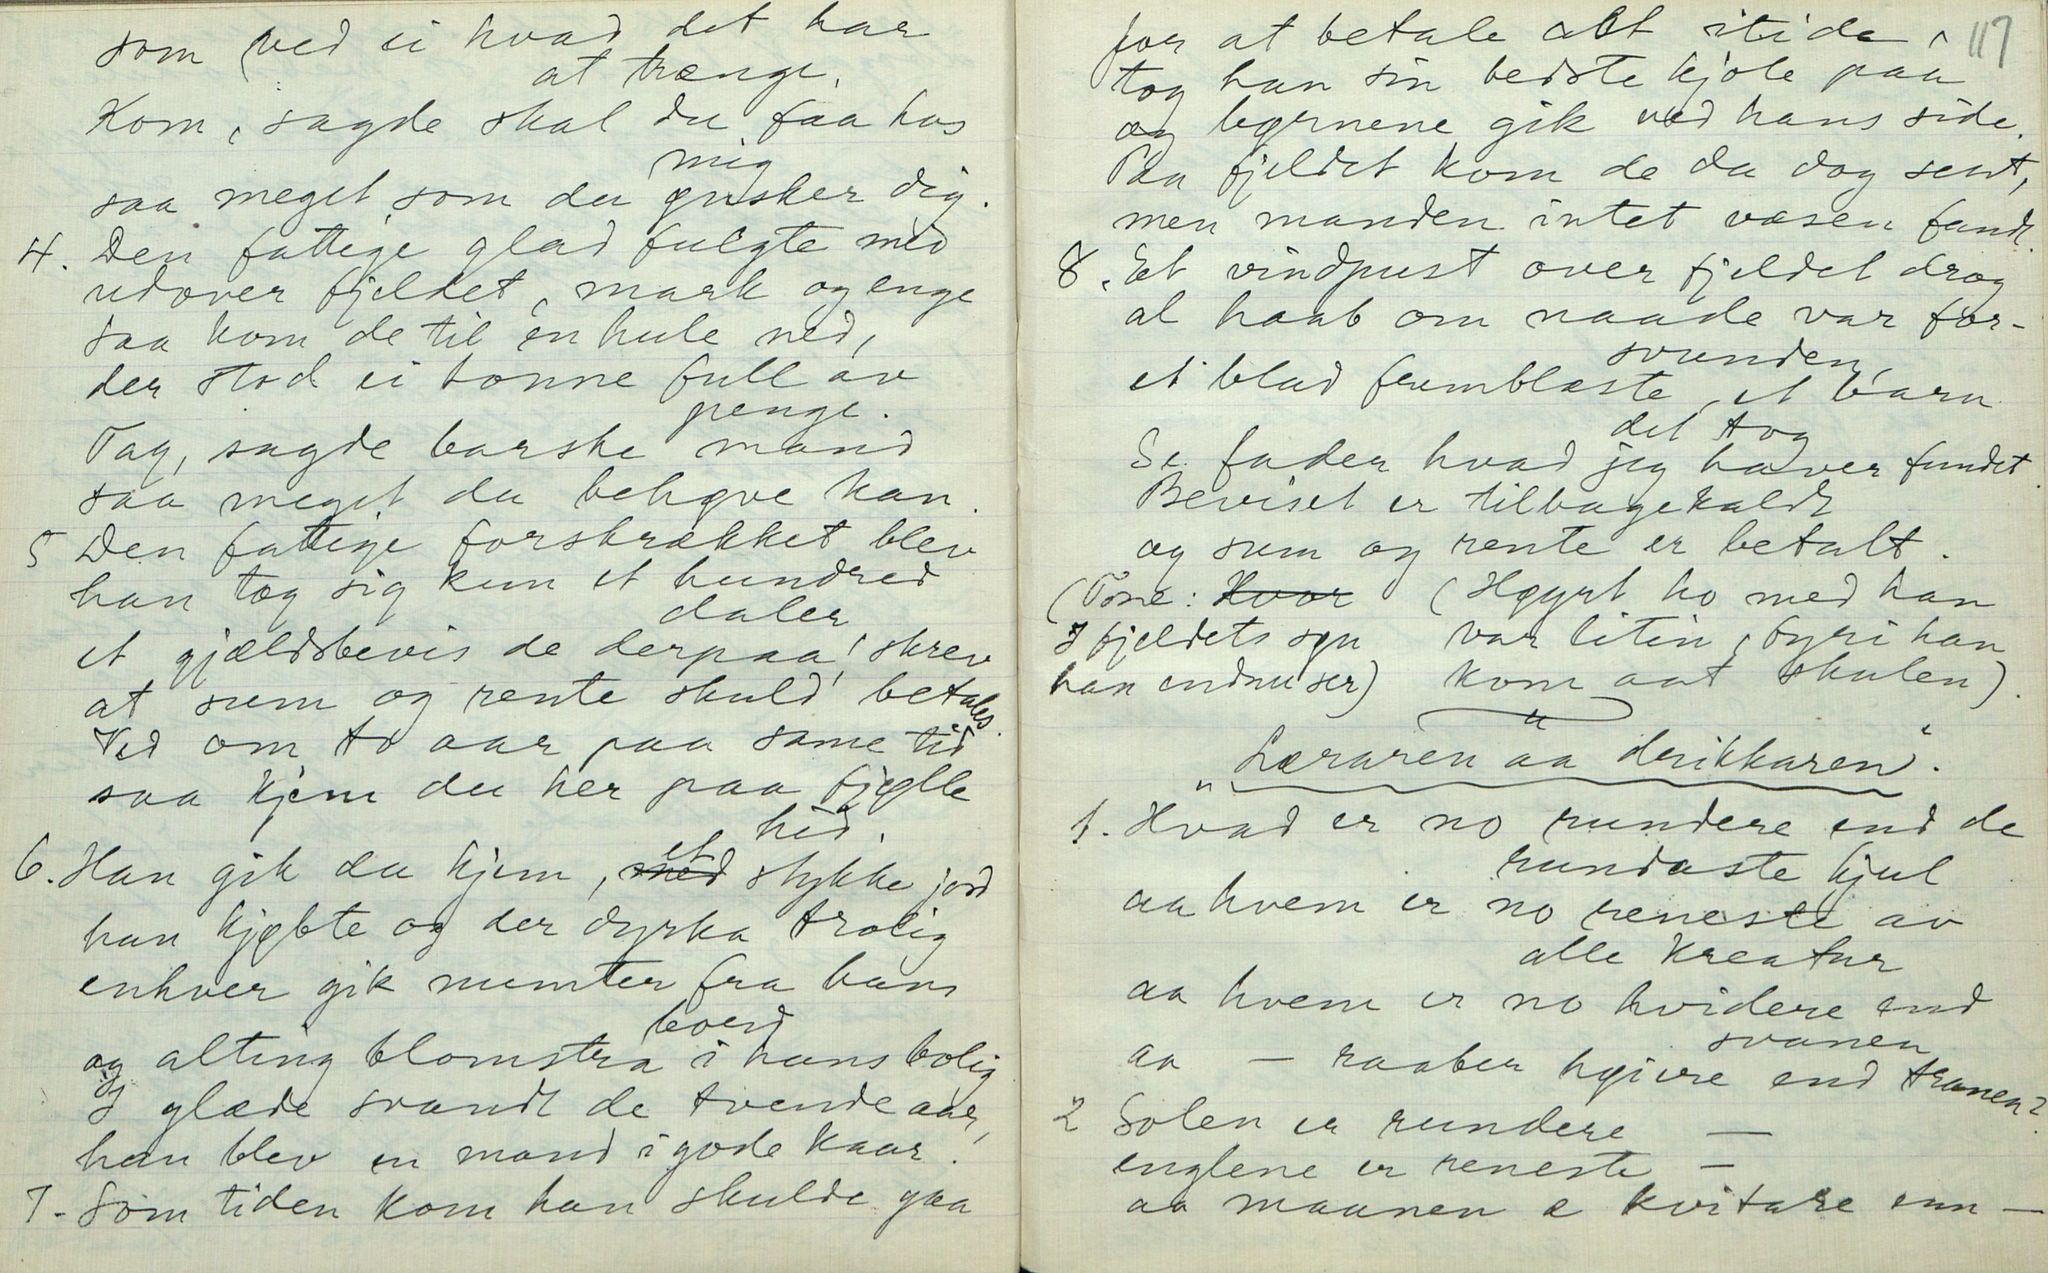 som ved ei hvad det har
at trænge.
Kom, sagde skal du faa hos
mig
saa meget som du ønsker dig.
4. Den fattige glad fulgte med
udover fjeldet, mark og enge
saa kom de til en hule ned,
der stod ei tønne full av
penge.
Tag, sagde barske mand
saa meget du behøve kan.
5 Den fattige forskrækket blev
han tog sig kun et hundred
daler
et gjældsbevis de derpaa skrev
at sum og rente skuld' betales.
Ved om to aar paa same tid
saa kjem du her paa fjelle
hid.
6. Han gik da hjem, et stykke jord
han kjøbte og der dyrka trolig
enhver gik mumter fra hans
bord
og alting blomstra i hans bolig
I glæde svandt de tvende aar,
han blev en mand i gode kaar.
7. Som tiden kom han skulde gaa
117
for at betale alt itide,
tog han sin bedste kjole paa
og børnene gik ved hans side.
Paa fjeldet kom de da dog sent,
men manden intet væsen fandt.
8. Et vindpust over fjeldet drog
al haab om naade var for-
svunden,
et blad fremblæste, et barn
det tog
Se fader hvad jeg haver fundet.
Beviset er tilbagekaldt
og sum og rente er betalt.
(Tone: Hvor (Høyrt ho med han
I fjeldets søn var litin, fyri han
han endnu ser) kom aat skulen).
"Læraren aa drikkaren".
1. Hvad er no rundere end de
rundaste hjul
aa hvem er no reneste av
alle kreatur
aa hvem er no hvidere end
svanen
aa — raaber høiere end tranen?
2 Solen er rundere —
englene er reneste —
aa maanen e kvitare enn —